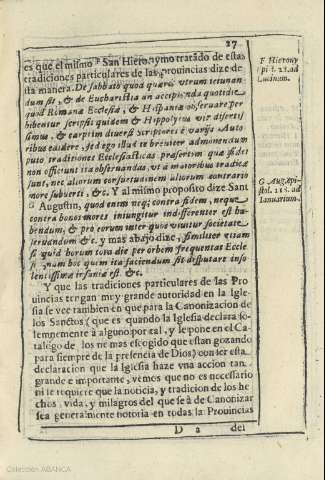 27
es que el mismo F San Hieronymo tratado de estas
tradiciones particulares de las prouincias dize de
sta manera. De sabbato quod quæris vtrum ieiunan
dum sit, & de Eucharistia an accipienda quotidie
quod Romanæ Ecclesiæ, & Hispaniæ obseruare per
hibentur scripsit quidem & Hippolytus vir disertis
simus, & carptim diuersi scriptores è varijs Auto
ribus edidere, sed ego illud te breuiter admonendum
puto traditiones Ecclesiasticas præsertim quæ fidei
non officiunt ita obseruandas, vt à maioribus traditæ
sunt, nec aliorum consuetudinem aliorum contrario
more subuerti, &c. Y al mismo proposito dize Sant
G Augustin, quod enim neq; contra fidem, neque
contra bonos mores iniungitur indifferenter est ha
bendum, & pro eorum inter quos viuitur societate
seruandum & c. y mas abajo dize, similiter etiam
si quid horum tota die per orbem frequentat Eccle
sia nam hoc quem ita faciendum sit disputare inso
lentissimæ insaniæ est. &c.
Y que las tradiciones particulares de las Pro
uincias tengan muy grande autoridad en la Igle-
sia se vee tambien en que para la Canonizacion de
los Sanctos (que es quando la Iglesia declara so-
lemnemente à alguno por tal, y le pone en el Ca-
talogo de los ne mas escogido que estan gozando
para siempre de la presencia de Dios) con ser esta
declaracion que la Iglesia haze vna accion tan
grande e importante, vemos que no es necessario
ni se requiere que la noticia, y tradicion de los he
chos, vida, y milagros del que se à de Canonizar
sea generalmente notoria en todas la Prouincias
D 2 del
F Hierony
epi st. 28. ad
Lucinum.
G Augusti-
stol. 118. ad
Ianuarium.
Colección ABANCA